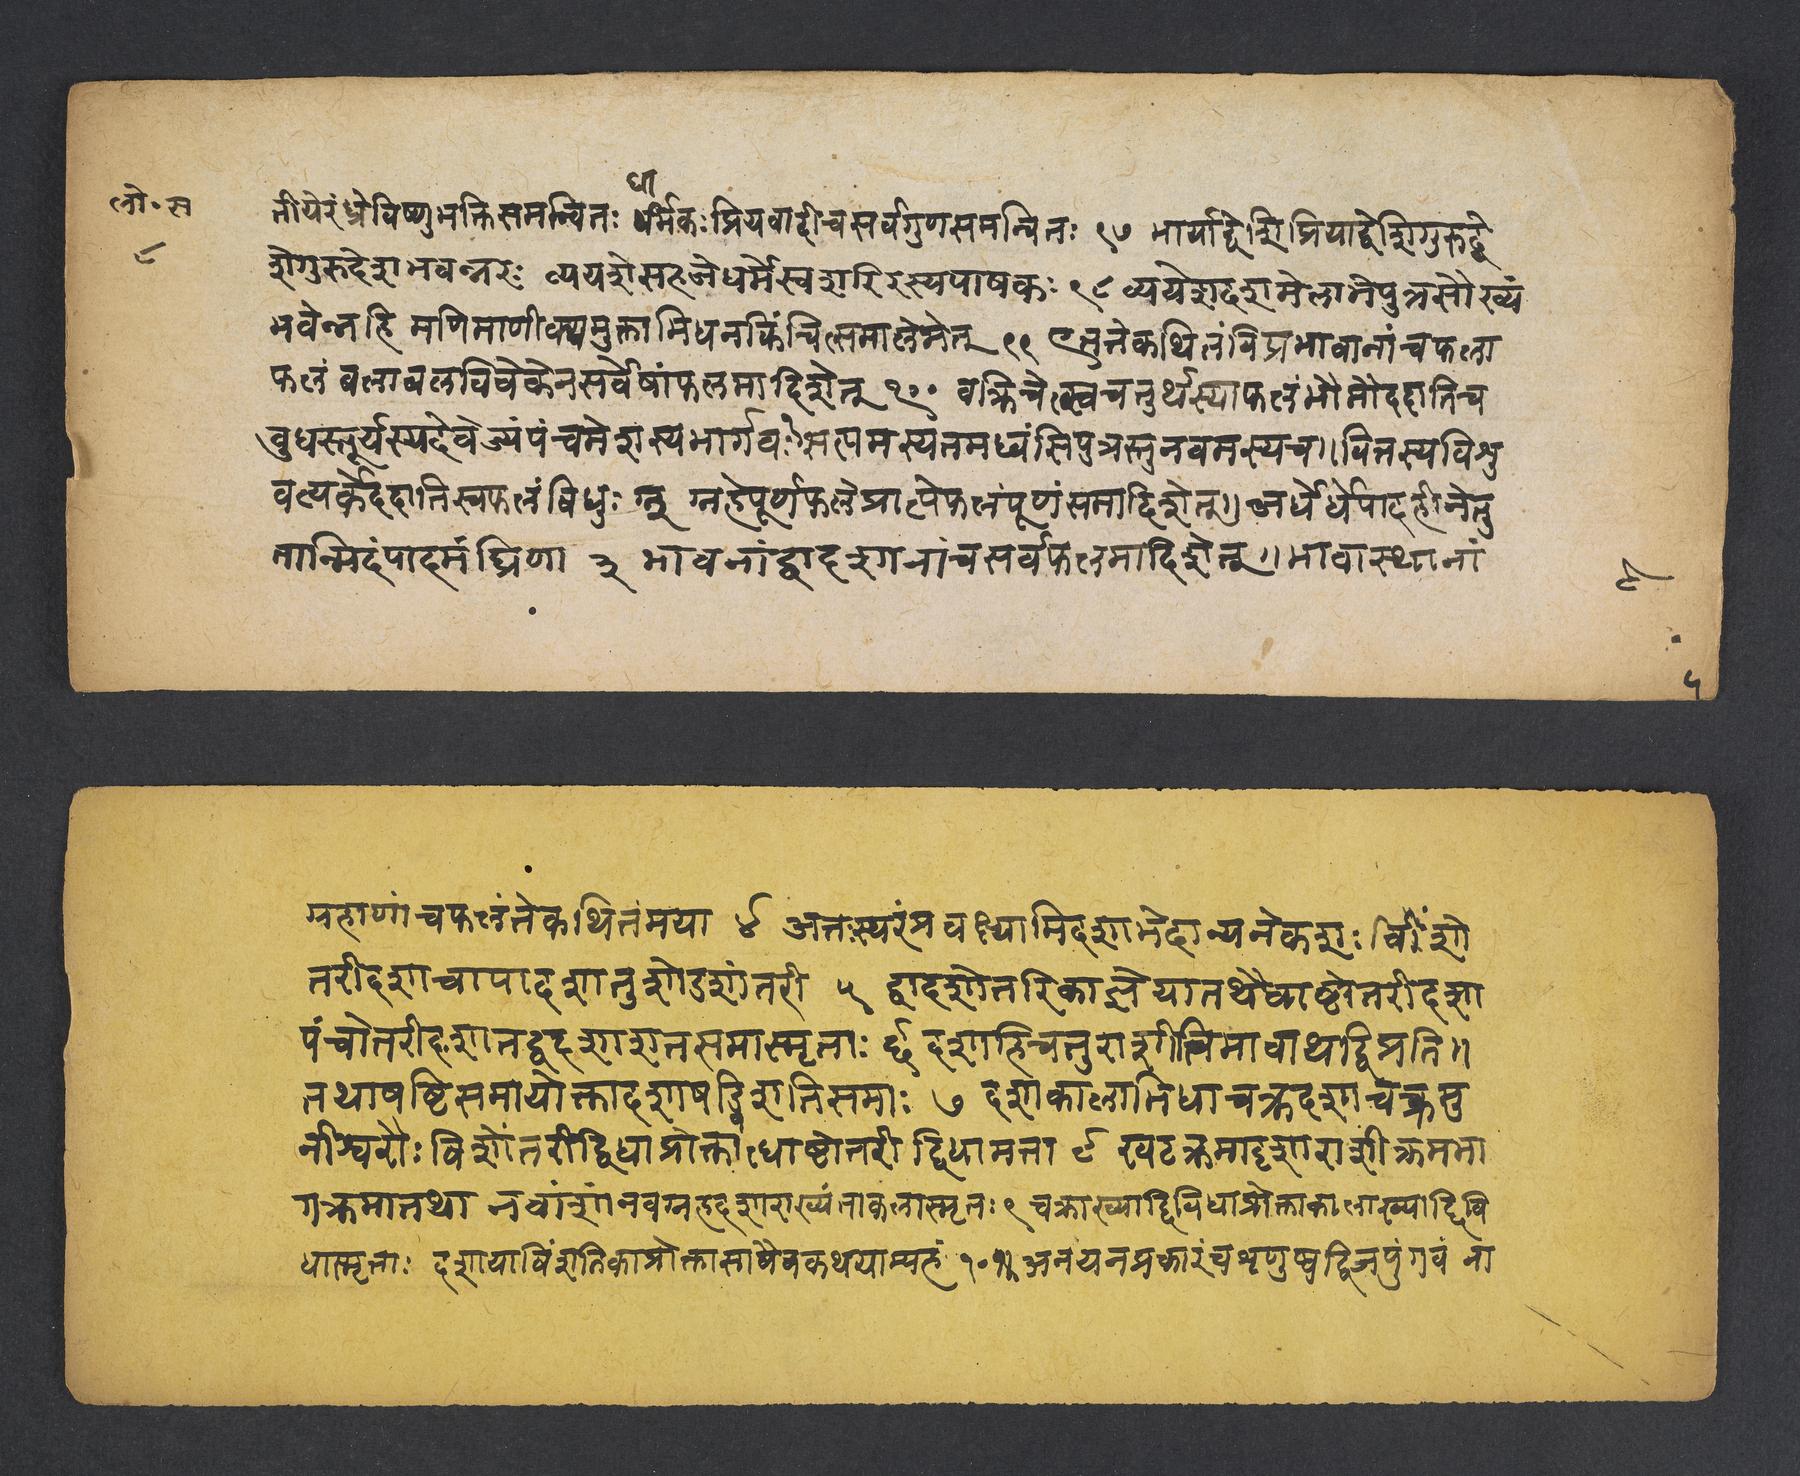 लो॰ स
८
धा
तीयेरंध्रेविष्णुभक्तिसमन्वितः धर्मिकःप्रियवादीचसर्वगुणसमन्वितः ९७ भार्याद्वेशिप्रियाद्वेशिगुरुद्वे
शेगुरुहेशभवन्नरः व्ययशेसहजेधर्मेस्वशरिरस्यपोषकः ९८ व्ययेशेदशमेलाभेपुत्रसौख्यं
भवेन्नहि मणिमाणीक्यमुक्ताभिधनकिंचित्समालभेत् ९९ कथितंविप्रभावानांचफला
फलंबलाबलविवेकेनसर्वेषांफलमादिशेत् १०० चतुर्थस्याफलंभौमौददातिच
बुधस्तूर्यस्यदेवेज्यंपंचमेशस्यभार्गवः सप्तमस्यतमध्वंसिपुत्रस्तुनवमस्यच॥वित्तस्यविशु
वत्यर्कोददातिस्वफलंविधुः ग्रहेपूर्णफलंप्राप्तेफलंपूर्णंसमादिशेत्॥अर्धेर्धंपादहीनेतु
तान्मिदंपादमंघ्रिणा ३ भावनांद्वादशगनांचसर्वफलमादिशेत्॥भावास्थानां
५
ग्रहाणांचफलंतेकथितंमया ४ अतःस्परंप्रवक्ष्यामिदशाभेदान्यनेकशः विंशो
तरीदशाचापादशातुशोडशांतरी ५ द्वादशोतरिकाज्ञेयातथैवाष्टोतरीदशा
पंचोतरीदशातद्वद्दशाशतसमास्मृताः ६ दशाहिचतुराशीतिमावाथद्विप्रति॥
तथाषष्टिसमायोक्तादशाषड्विंशतिसमाः ७ दशाकालाभिधाचक्रदशाचक्रमु
नीश्वरौः विंशोतरीद्विधाप्रोक्ताधोष्टोतरीद्विधामता ८ खटक्रमादृशाराशीक्रमभा
गक्रमातथा नवांशंनवग्रहदशाराख्यंताकलास्मृतः ९ चक्राख्याद्विविधाप्रोक्ताकालाख्याद्विवि
धास्मृताः दशायाविंशतिकाप्रोक्तासाचैवकथयाम्यहं १० अनयनप्रकारंचशृणुष्वद्विजपुंगवं ना